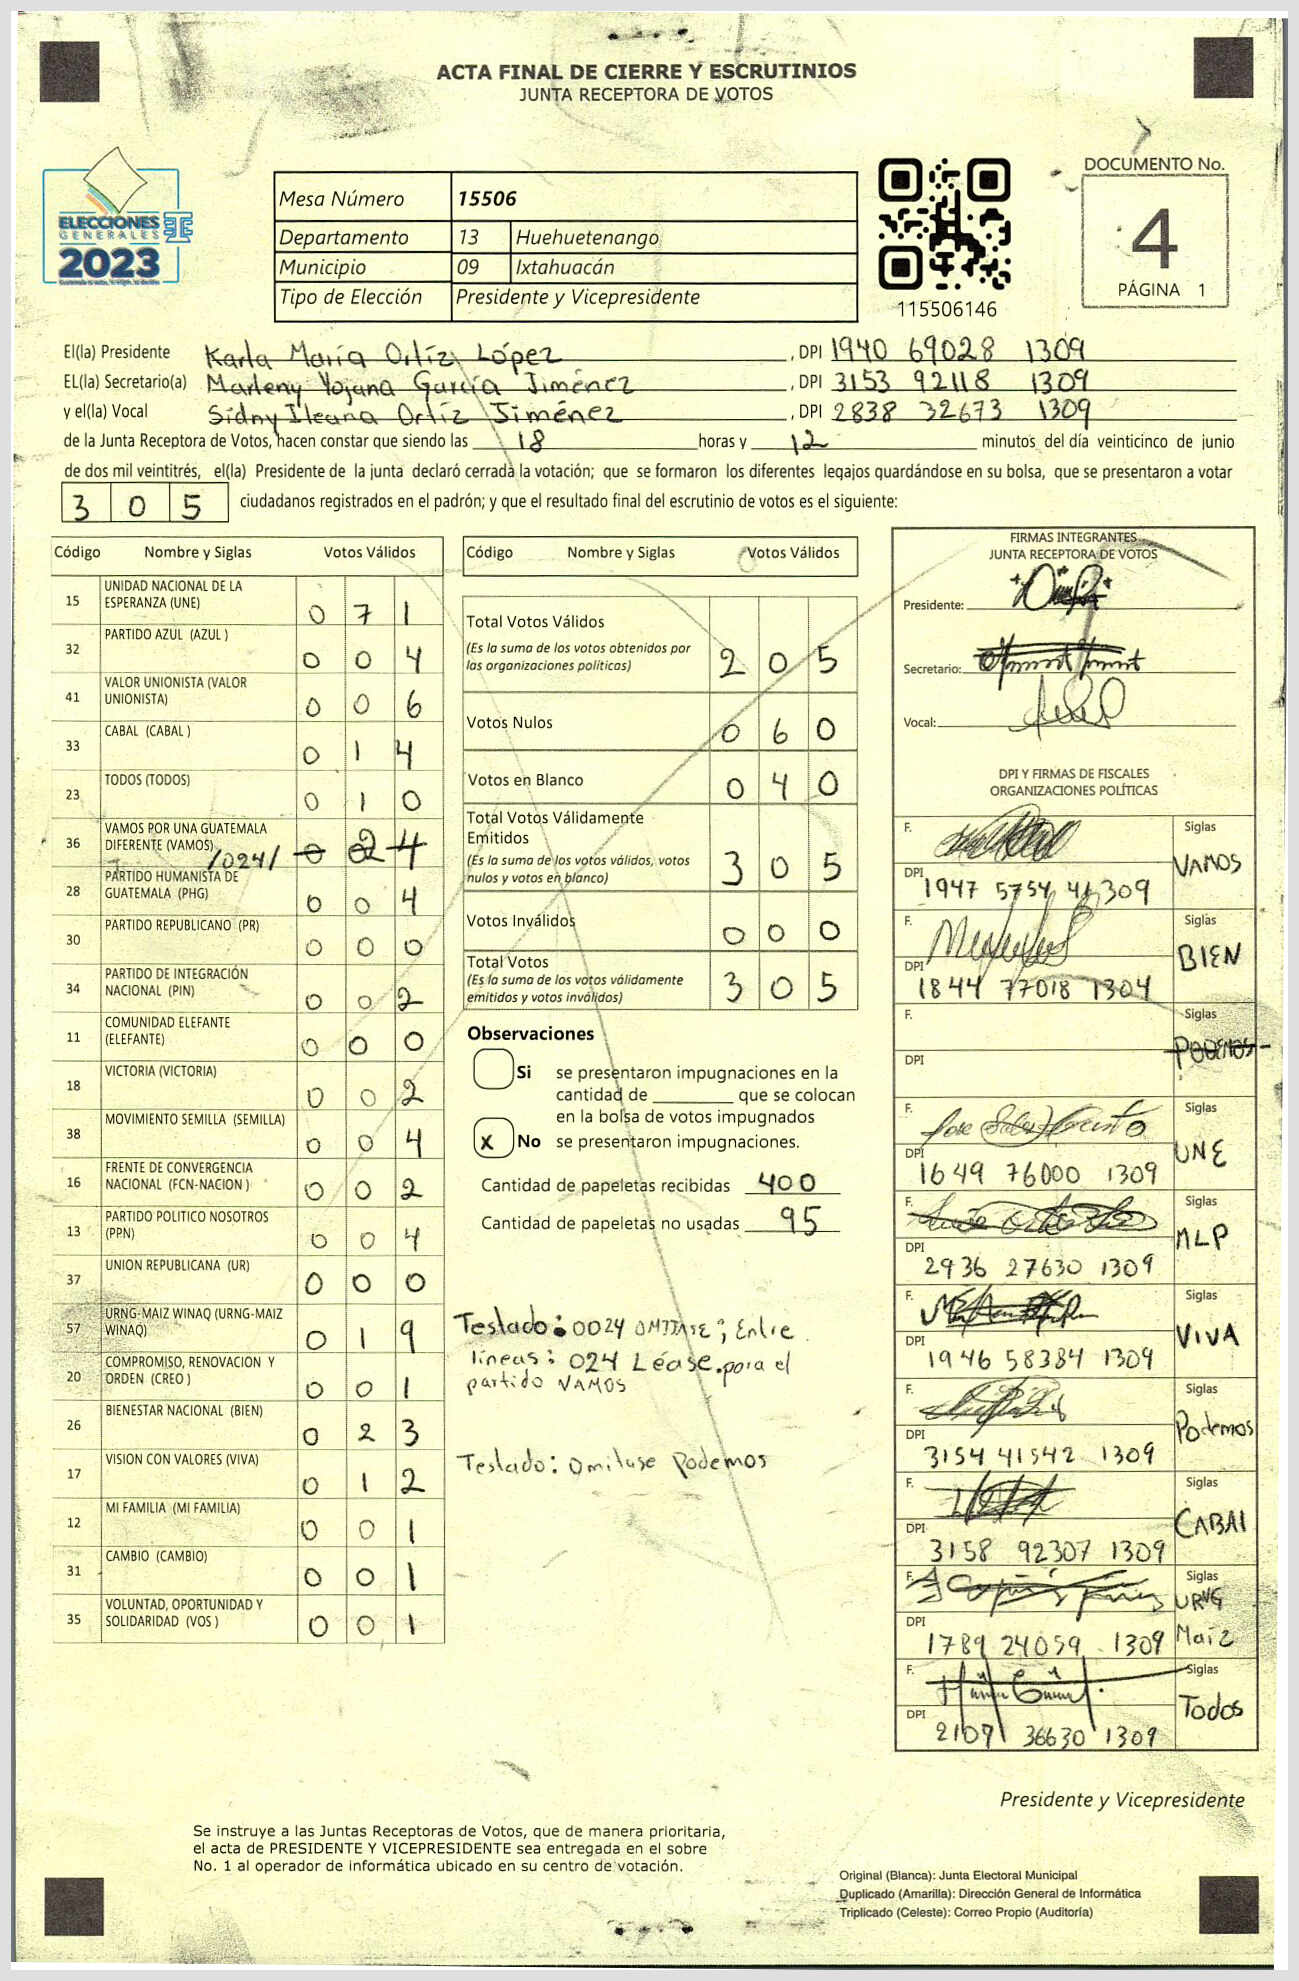 ACTA FINAL DE CIERRE Y ESCRUTINIOS
JUNTA RECEPTORA DE VOTOS
ELECCIONES
GENERALES
2023
Mesa Número 15506
Departamento 13 Huehuetenango
Municipio 09 Ixtahuacán
Tipo de Elección Presidente y Vicepresidente
115506146
DOCUMENTO No.
4
PÁGINA 1
El(la) Presidente Karla María Ortíz López, DPI 1940 69028 1309
EL(la) Secretario(a) Marleny Yojana García Jiménez, DPI 3153 92118 1309
y el(la) Vocal Sidny Ileana Ortíz Jiménez, DPI 2838 32673 1309
de la Junta Receptora de Votos, hacen constar que siendo las 18 horas y 12 minutos del día veinticinco de junio
de dos mil veintitrés, el(la) Presidente de la junta declaró cerrada la votación; que se formaron los diferentes legajos guardándose en su bolsa, que se presentaron a votar
3 0 5 ciudadanos registrados en el padrón; y que el resultado final del escrutinio de votos es el siguiente:
Código Nombre y Siglas Votos Válidos
15 UNIDAD NACIONAL DE LA
ESPERANZA (UNE) 0 7 1
32 PARTIDO AZUL (AZUL ) 0 0 4
41 VALOR UNIONISTA (VALOR
UNIONISTA) 0 0 6
33 CABAL (CABAL ) 0 1 4
23 TODOS (TODOS) 0 1 0
36 VAMOS POR UNA GUATEMALA
DIFERENTE (VAMOS) /024/ 0 02 4
28 PARTIDO HUMANISTA DE
GUATEMALA (PHG) 0 0 4
30 PARTIDO REPUBLICANO (PR) 0 0 0
34 PARTIDO DE INTEGRACIÓN
NACIONAL (PIN) 0 0 2
11 COMUNIDAD ELEFANTE
(ELEFANTE) 0 0 0
18 VICTORIA (VICTORIA) 0 0 2
38 MOVIMIENTO SEMILLA (SEMILLA) 0 0 4
16 FRENTE DE CONVERGENCIA
NACIONAL (FCN-NACION ) 0 0 2
13 PARTIDO POLITICO NOSOTROS
(PPN) 0 0 4
37 UNION REPUBLICANA (UR) 0 0 0
57 URNG-MAIZ WINAQ (URNG-MAIZ
WINAQ) 0 1 9
20 COMPROMISO, RENOVACION Y
ORDEN (CREO ) 0 0 1
26 BIENESTAR NACIONAL (BIEN) 0 2 3
17 VISION CON VALORES (VIVA) 0 1 2
12 MI FAMILIA (MI FAMILIA) 0 0 1
31 CAMBIO (CAMBIO) 0 0 1
35 VOLUNTAD, OPORTUNIDAD Y
SOLIDARIDAD (VOS ) 0 0 1
Código Nombre y Siglas Votos Válidos
Total Votos Válidos
(Es la suma de los votos obtenidos por
las organizaciones políticas) 2 0 5
Votos Nulos 0 6 0
Votos en Blanco 0 4 0
Total Votos Válidamente
Emitidos
(Es la suma de los votos válidos, votos
nulos y votos en blanco) 3 0 5
Votos Inválidos 0 0 0
Total Votos
(Es la suma de los votos válidamente
emitidos y votos inválidos) 3 0 5
Observaciones
Si se presentaron impugnaciones en la
cantidad de ________ que se colocan
en la bolsa de votos impugnados
x No se presentaron impugnaciones.
Cantidad de papeletas recibidas 400
Cantidad de papeletas no usadas 95
Testado: 0024 OMITASE; Entre
líneas: 024 Léase. para el
partido VAMOS
Testado: Omitase Podemos
FIRMAS INTEGRANTES
JUNTA RECEPTORA DE VOTOS
Presidente:
Secretario:
Vocal:
DPI Y FIRMAS DE FISCALES
ORGANIZACIONES POLÍTICAS
F. Siglas
VAMOS
DPI 1947 5754 41309
F. Siglas
BIEN
DPI 1844 77018 1304
F. Siglas
PODEMOS
DPI
F. Siglas
UNE
DPI 1649 76000 1309
F. Siglas
MLP
DPI 2936 27630 1309
F. Siglas
VIVA
DPI 1946 58384 1309
F. Siglas
Podemos
DPI 3154 41542 1309
F. Siglas
CABAl
DPI 3158 92307 1309
F. Siglas
URNG
Maíz
DPI 1789 24059 1309
F. Siglas
Todos
DPI 2107 36630 1309
Presidente y Vicepresidente
Se instruye a las Juntas Receptoras de Votos, que de manera prioritaria,
el acta de PRESIDENTE Y VICEPRESIDENTE sea entregada en el sobre
No. 1 al operador de informática ubicado en su centro de votación.
Original (Blanca): Junta Electoral Municipal
Duplicado (Amarilla): Dirección General de Informática
Triplicado (Celeste): Correo Propio (Auditoría)